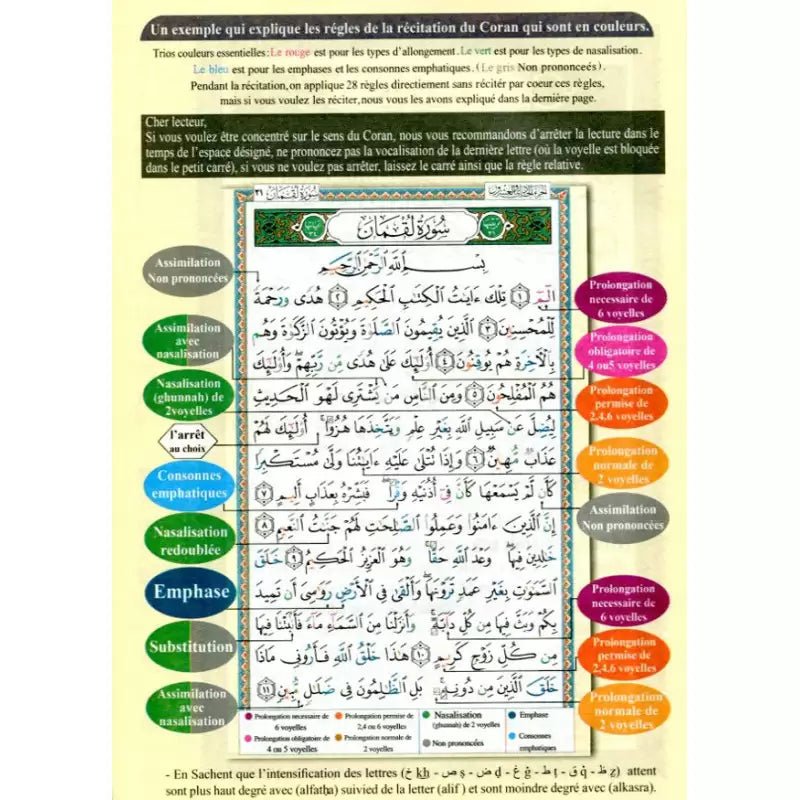 Un exemple qui explique les régles de la récitation du Coran qui sont en couleurs.
Trios couleurs essentielles: Le rouge est pour les types d'allongement. Le vert est pour les types de nasalisation.
Le bleu est pour les emphases et les consonnes emphatiques. (Le gris Non prononceés).
Pendant la récitation,on applique 28 règles directement sans récité par coeur ces règles,
mais si vous voulez les réciter,nous vous les avons expliqué dans la dernière page.
Cher lecteur,
Si vous voulez être concentré sur le sens du Coran, nous vous recommandons d'arrêter la lecture dans le
temps de l'espace désigné, ne prononcez pas la vocalisation de la dernière lettre (où la voyelle est bloquée
dans le petit carré), si vous ne voulez pas arrêter, laissez le carré ainsi que la règle relative.
الجزء الحادي والعشرون
سورة لقمان ٣١
سُورَةُ لُقْمَان
بِسْمِ ٱللَّهِ ٱلرَّحْمَٰنِ ٱلرَّحِيمِ
الٓمٓ ١ تِلْكَ ءَايَٰتُ ٱلْكِتَٰبِ ٱلْحَكِيمِ ٢ هُدًى وَرَحْمَةً
لِّلْمُحْسِنِينَ ٣ ٱلَّذِينَ يُقِيمُونَ ٱلصَّلَوٰةَ وَيُؤْتُونَ ٱلزَّكَوٰةَ وَهُم
بِٱلْءَاخِرَةِ هُمْ يُوقِنُونَ ٤ أُو۟لَٰٓئِكَ عَلَىٰ هُدًى مِّن رَّبِّهِمْ ۖ وَأُو۟لَٰٓئِكَ
هُمُ ٱلْمُفْلِحُونَ ٥ وَمِنَ ٱلنَّاسِ مَن يَشْتَرِى لَهْوَ ٱلْحَدِيثِ
لِيُضِلَّ عَن سَبِيلِ ٱللَّهِ بِغَيْرِ عِلْمٍ وَيَتَّخِذَهَا هُزُوًا ۚ أُو۟لَٰٓئِكَ لَهُمْ
عَذَابٌ مُّهِينٌ ٦ وَإِذَا تُتْلَىٰ عَلَيْهِ ءَايَٰتُنَا وَلَّىٰ مُسْتَكْبِرًا
كَأَن لَّمْ يَسْمَعْهَا كَأَنَّ فِىٓ أُذُنَيْهِ وَقْرًا ۖ فَبَشِّرْهُ بِعَذَابٍ أَلِيمٍ ٧
إِنَّ ٱلَّذِينَ ءَامَنُوا۟ وَعَمِلُوا۟ ٱلصَّٰلِحَٰتِ لَهُمْ جَنَّٰتُ ٱلنَّعِيمِ ٨
خَٰلِدِينَ فِيهَا ۖ وَعْدَ ٱللَّهِ حَقًّا ۚ وَهُوَ ٱلْعَزِيزُ ٱلْحَكِيمُ ٩ خَلَقَ
ٱلسَّمَٰوَٰتِ بِغَيْرِ عَمَدٍ تَرَوْنَهَا ۖ وَأَلْقَىٰ فِى ٱلْأَرْضِ رَوَٰسِىَ أَن تَمِيدَ
بِكُمْ وَبَثَّ فِيهَا مِن كُلِّ دَآبَّةٍ ۚ وَأَنزَلْنَا مِنَ ٱلسَّمَآءِ مَآءً فَأَنۢبَتْنَا فِيهَا
مِن كُلِّ زَوْجٍ كَرِيمٍ ١٠ هَٰذَا خَلْقُ ٱللَّهِ فَأَرُونِى مَاذَا
خَلَقَ ٱلَّذِينَ مِن دُونِهِۦ ۚ بَلِ ٱلظَّٰلِمُونَ فِى ضَلَٰلٍ مُّبِينٍ ١١
Assimilation
Non prononcées
Assimilation
avec
nasalisation
Nasalisation
(ghunnah) de
2voyelles
l'arrêt
au choix
Consonnes
emphatiques
Nasalisation
redoublée
Emphase
Substitution
Assimilation
avec
nasalisation
Prolongation
necessaire de
6 voyelles
Prolongation
obligatoire de
4 ou5 voyelles
Prolongation
permise de
2.4.6 voyelles
Prolongation
normale de
2 voyelles
Assimilation
Non prononcées
Prolongation
necessaire de
6 voyelles
Prolongation
permise de
2,4.6 voyelles
Prolongation
normale de
2 voyelles
Prolongation necessaire de
6 voyelles
Prolongation permise de
2,4 ou 6 voyelles
Nasalisation
(ghunnah) de 2 voyelles
Emphase
Prolongation obligatoire de
4 ou 5 voyelles
Prolongation normale de
2 voyelles
Non prononcées
Consonnes
emphatiques
- En Sachent que l'intensification des lettres (خ kh - ص ṣ - ض ḍ - غ ġ - ط ṭ - ق q - ظ ẓ) attent
sont plus haut degré avec (alfatḥa) suivied de la letter (alif ) et sont moindre degré avec (alkasra).